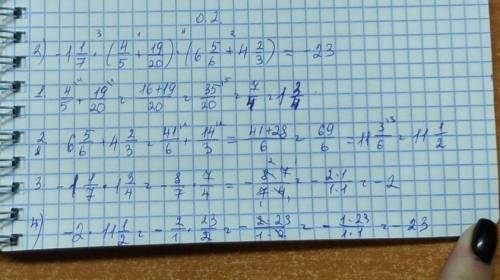 0.2.
2) -1 1/7 · (4/5 + 19/20) · (6 5/6 + 4 2/3) = -23
1. 4/5 + 19/20 = 16+19/20 = 35/20 = 7/4 = 1 3/4.
2. 6 5/6 + 4 2/3 = 41/6 + 14/3 = 41+28/6 = 69/6 = 11 3/6 = 11 1/2
3. -1 1/7 · 1 3/4 = -8/7 · 7/4 = -8·7/7·4 = -2·1/1·1 = -2
4) -2 · 11 1/2 = -2/1 · 23/2 = -2·23/1·2 = -1·23/1·1 = -23